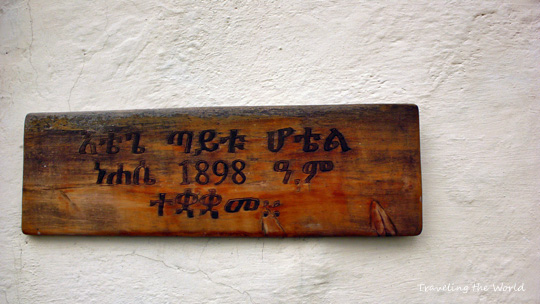 እቴጌ ጣይቱ ሆቴል
ነሐሴ 1898 ዓ.ም
ተቋቋመ።
Traveling the World